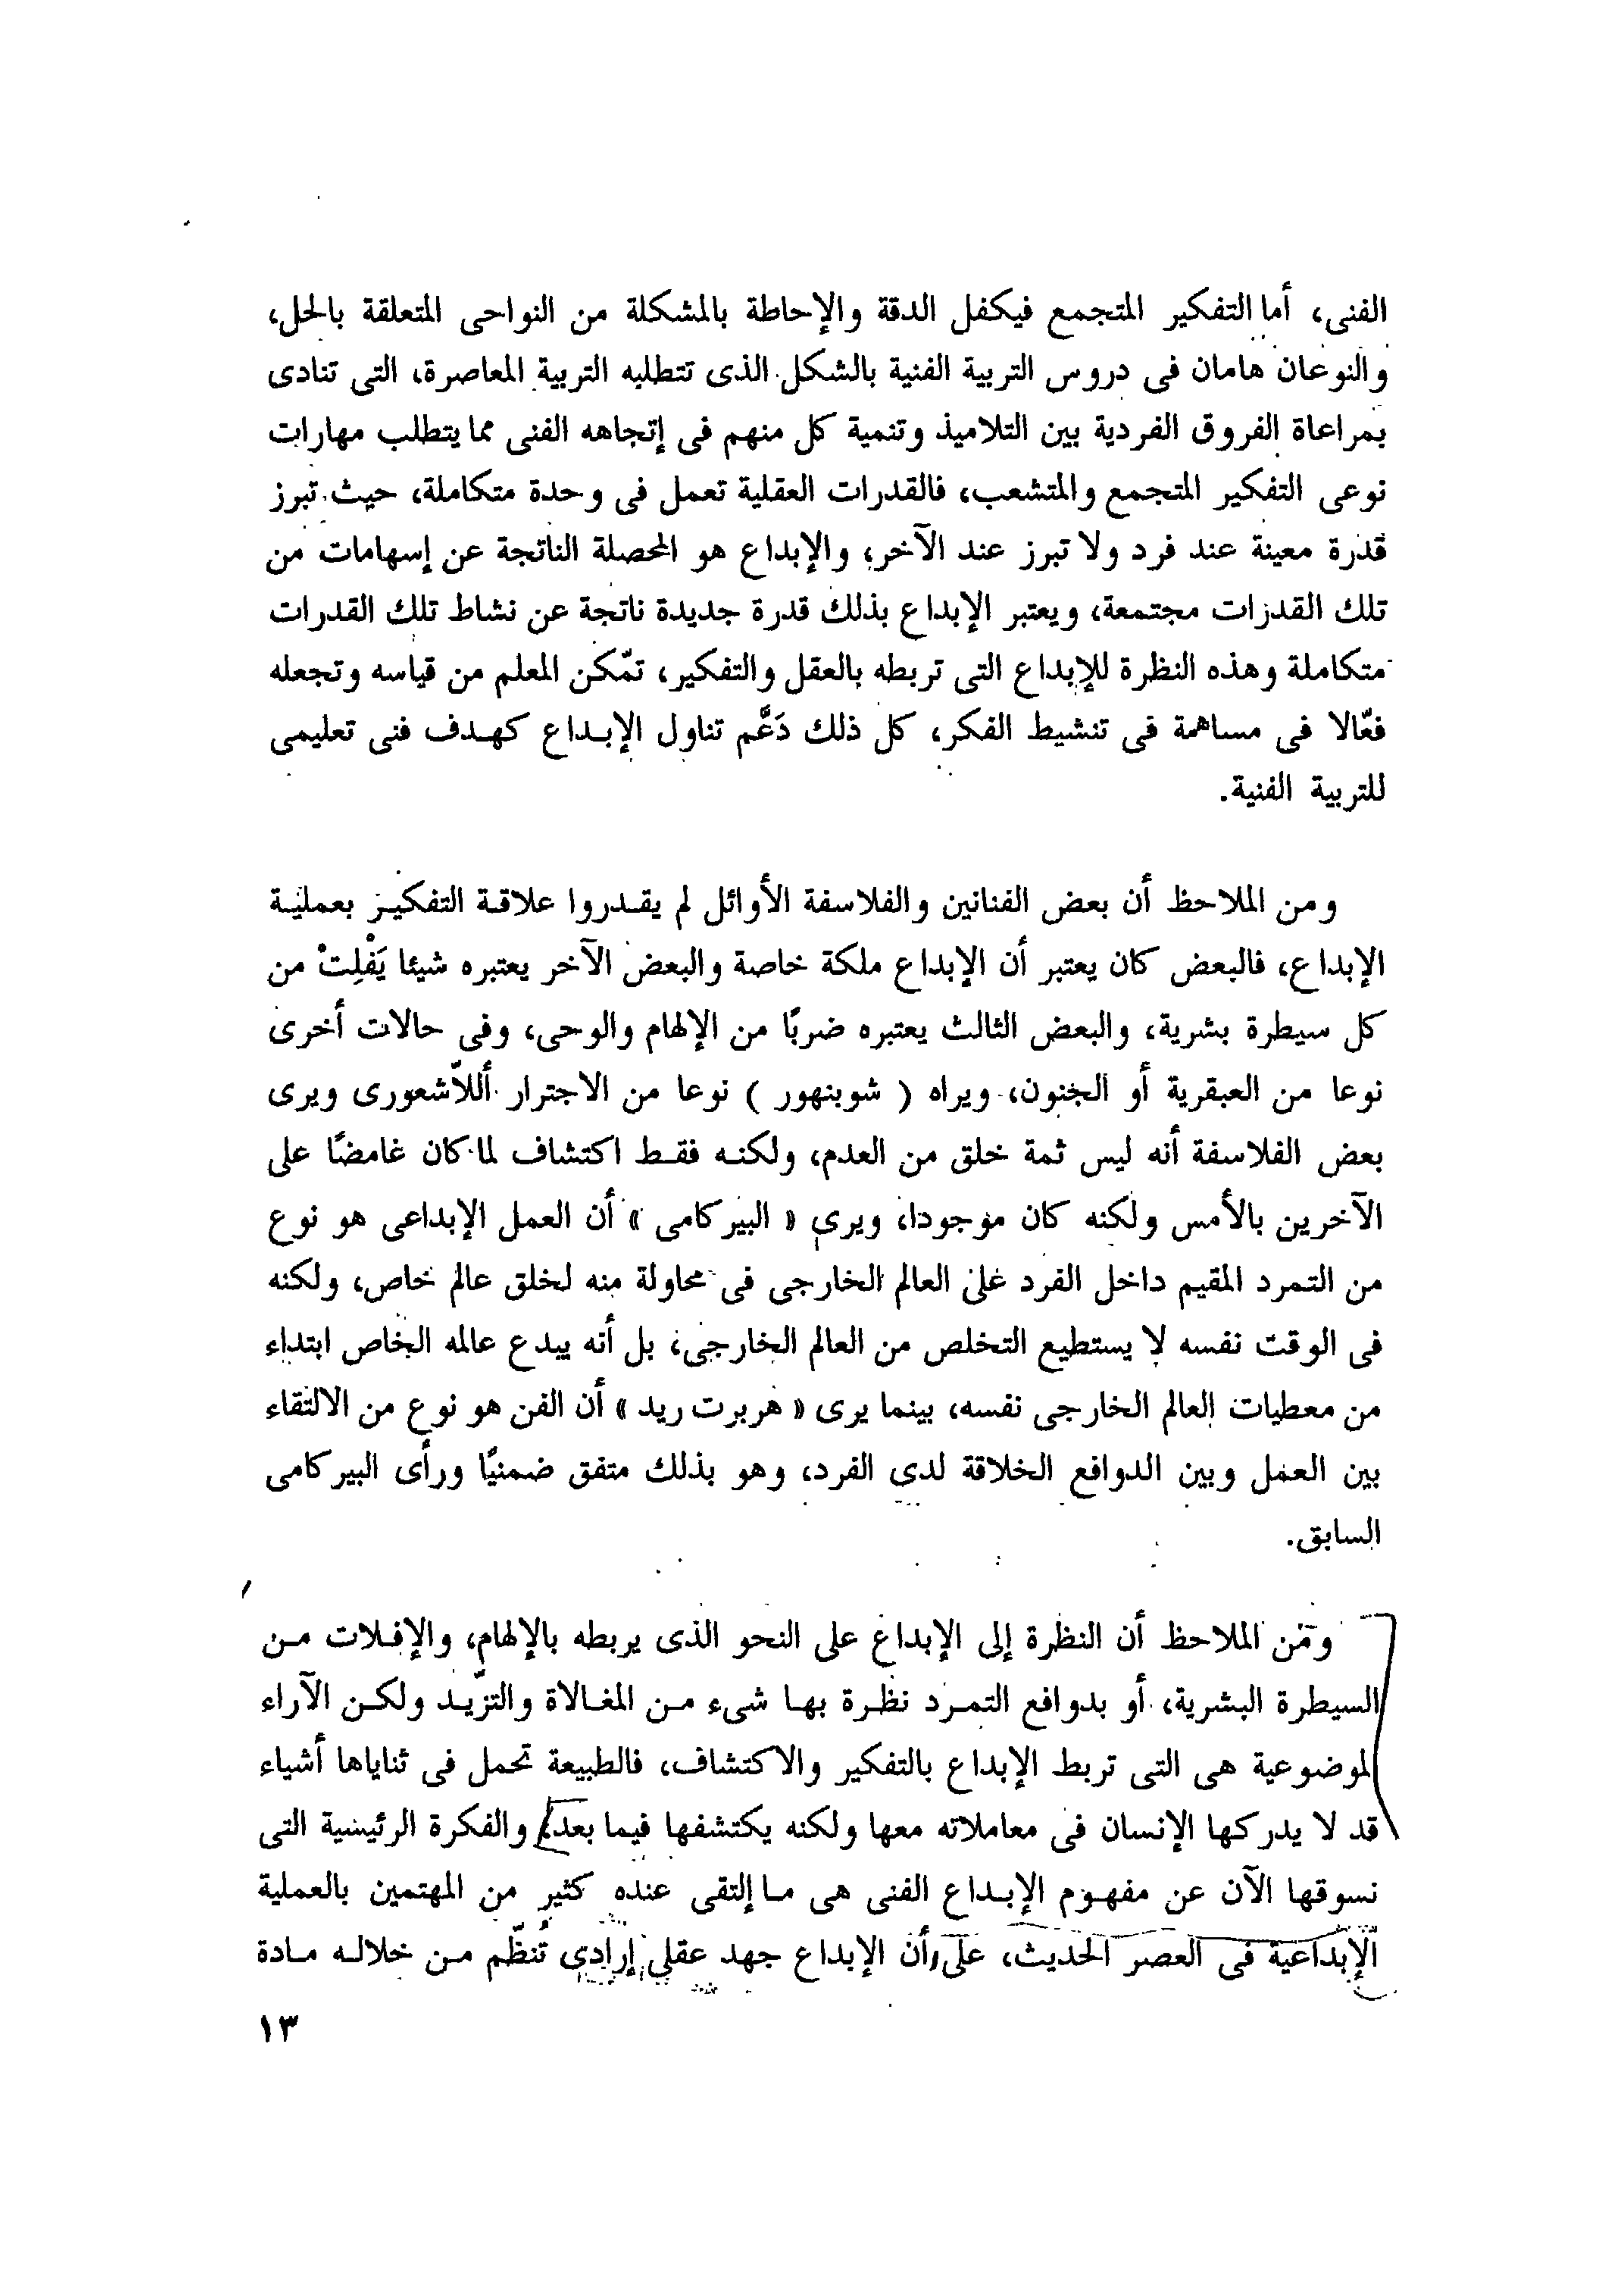 الفنى، أما التفكير المتجمع فيكفل الدقة والإحاطة بالمشكلة من النواحى المتعلقة بالحل،
والنوعان هامان فى دروس التربية الفنية بالشكل الذى تتطلبه التربية المعاصرة، التى تنادى
بمراعاة الفروق الفردية بين التلاميذ وتنمية كل منهم فى إتجاهه الفنى مما يتطلب مهارات
نوعى التفكير المتجمع والمتشعب، فالقدرات العقلية تعمل فى وحدة متكاملة، حيث تبرز
قدرة معينة عند فرد ولا تبرز عند الآخر، والإبداع هو المحصلة الناتجة عن إسهامات من
تلك القدرات مجتمعة، ويعتبر الإبداع بذلك قدرة جديدة ناتجة عن نشاط تلك القدرات
متكاملة وهذه النظرة للإبداع التى تربطه بالعقل والتفكير، تمّكن المعلم من قياسه وتجعله
فعّالا فى مساهمة فى تنشيط الفكر، كل ذلك دَعَّم تناول الإبداع كهدف فنى تعليمى
للتربية الفنية.
ومن الملاحظ أن بعض الفنانين والفلاسفة الأوائل لم يقدروا علاقة التفكير بعملية
الإبداع، فالبعض كان يعتبر أن الإبداع ملكة خاصة والبعض الآخر يعتبره شيئا يَفْلِتْ من
كل سيطرة بشرية، والبعض الثالث يعتبره ضربًا من الإلهام والوحى، وفى حالات أخرى
نوعا من العبقرية أو الجنون، ويراه ( شوبنهور ) نوعا من الاجترار أللاّشعورى ويرى
بعض الفلاسفة أنه ليس ثمة خلق من العدم، ولكنه فقط اكتشاف لما كان غامضًا على
الآخرين بالأمس ولكنه كان موجودا، ويرى « البيركامى » أن العمل الإبداعى هو نوع
من التمرد المقيم داخل الفرد على العالم الخارجى فى محاولة منه لخلق عالم خاص، ولكنه
فى الوقت نفسه لا يستطيع التخلص من العالم الخارجى، بل أنه يبدع عالمه الخاص ابتداء
من معطيات العالم الخارجى نفسه، بينما يرى « هربرت ريد » أن الفن هو نوع من الالتقاء
بين العمل وبين الدوافع الخلاقة لدى الفرد، وهو بذلك متفق ضمنيًا ورأى البيركامى
السابق.
ومن الملاحظ أن النظرة إلى الإبداع على النحو الذى يربطه بالإلهام، والإفلات من
السيطرة البشرية، أو بدوافع التمرد نظرة بها شىء من المغالاة والتزّيد ولكن الآراء
الموضوعية هى التى تربط الإبداع بالتفكير والاكتشاف، فالطبيعة تحمل فى ثناياها أشياء
قد لا يدركها الإنسان فى معاملاته معها ولكنه يكتشفها فيما بعد، والفكرة الرئيسية التى
نسوقها الآن عن مفهوم الإبداع الفنى هى ما إلتقى عنده كثير من المهتمين بالعملية
الإبداعية فى العصر الحديث، على أن الإبداع جهد عقلى إرادى تُنظّم من خلاله مادة
١٣